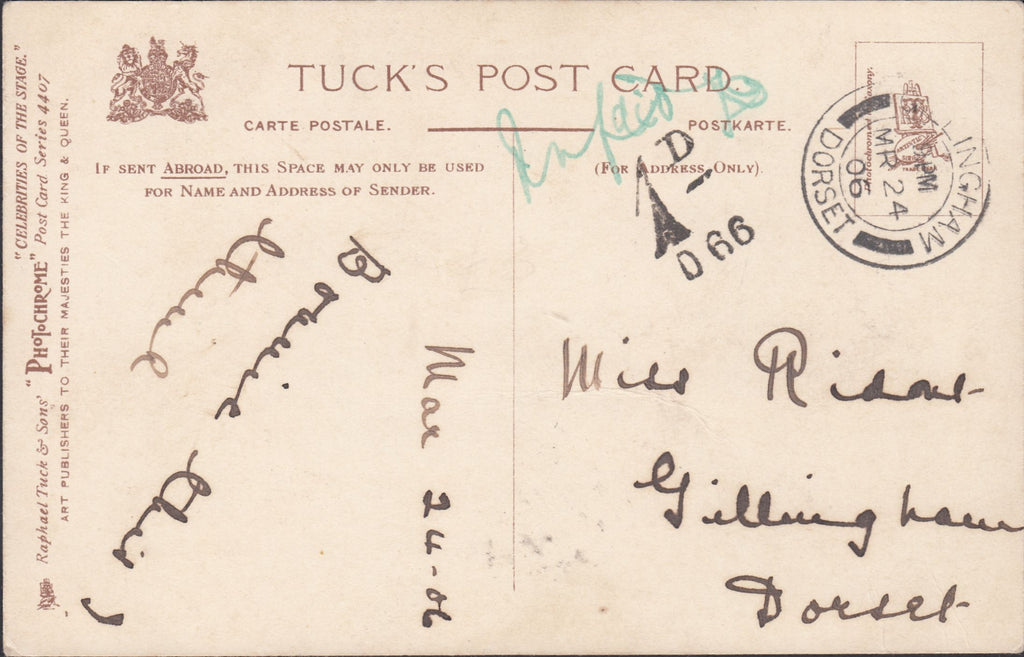 TUCK'S POST CARD.
CARTE POSTALE.
POSTKARTE.
IF SENT ABROAD, THIS SPACE MAY ONLY BE USED
FOR NAME AND ADDRESS OF SENDER.
(FOR ADDRESS ONLY)
"CELEBRITIES OF THE STAGE."
Raphael Tuck & Sons' "PHOTOCHROME" Post Card Series 4407
ART PUBLISHERS TO THEIR MAJESTIES THE KING & QUEEN.
1D
D66
GILLINGHAM
PM
MR 24
06
DORSET
this
time
Mar 24-06
Miss Ridout
Gillingham
Dorset